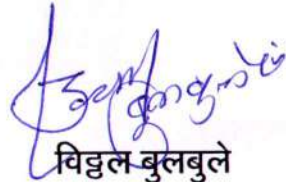 विठ्ठल बुलबुले